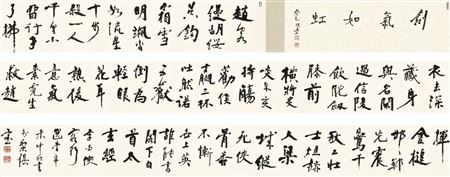 劍氣如虹
趙客
縵胡纓
吳鉤
霜雪
明颯沓
如流星
十步
殺一人
千里不
留行事
了拂
衣去深
藏身
與名閑
過信陵
飲脫劍
膝前
橫將炙
啖朱亥
持觴
勸侯
嬴三杯
吐然諾
五嶽
倒為
輕眼
花耳
熱後
意氣
素霓生
救趙
揮
金槌
邯鄲
先震
驚千
秋二壯
士烜赫
大梁
城縱
死俠
骨香
不慚
世上英
誰能書
閣下白
首太
玄經
李白俠
客行